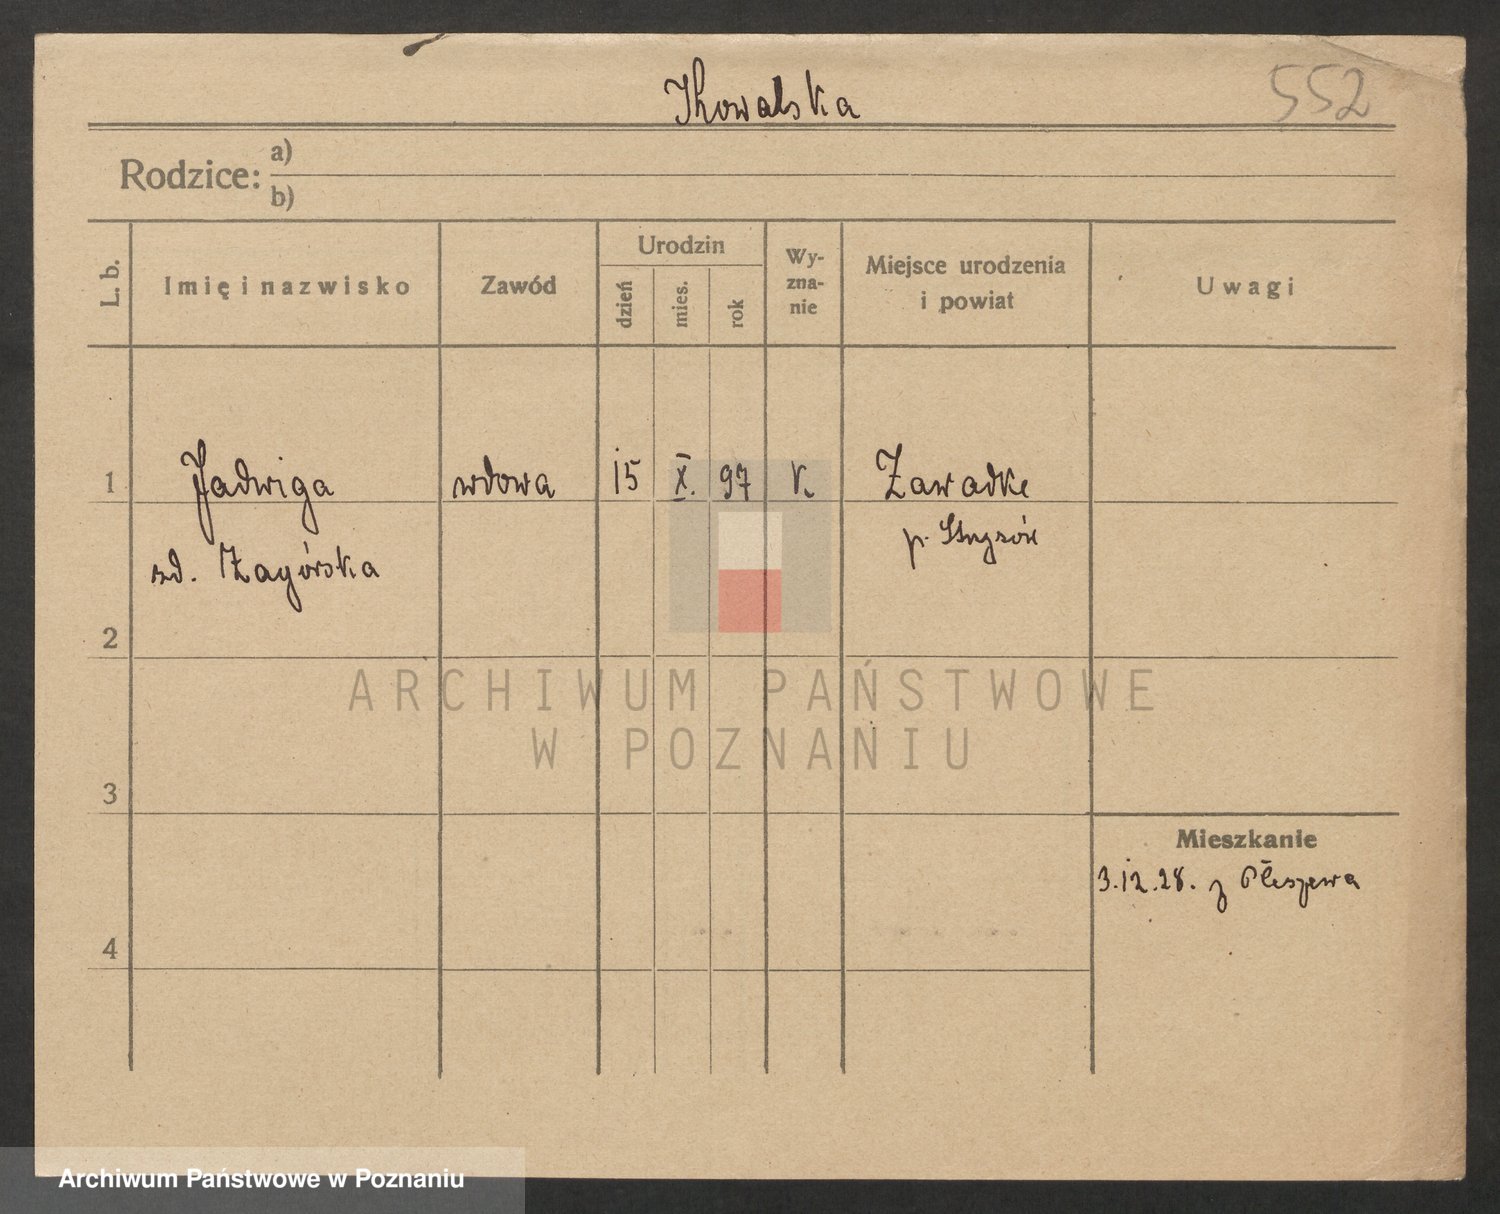 Kowalska
552
Rodzice: a)
b)
L. b.
Imię i nazwisko
Zawód
Urodzin
dzień
mies.
rok
Wy-
zna-
nie
Miejsce urodzenia
i powiat
Uwagi
1
Jadwiga
wdowa
15
X.
97
k.
Zawadke
p.
zd. Zagórska
2
ARCHIWUM PAŃSTWOWE
W POZNANIU
3
Mieszkanie
3.12.28. z Pleszewa
4
Archiwum Państwowe w Poznaniu